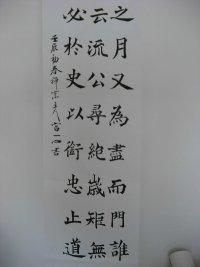 之月又為盡而門誰
云流公尋絶歲矩無
必於史以銜忠止道
壬辰初春禪宗